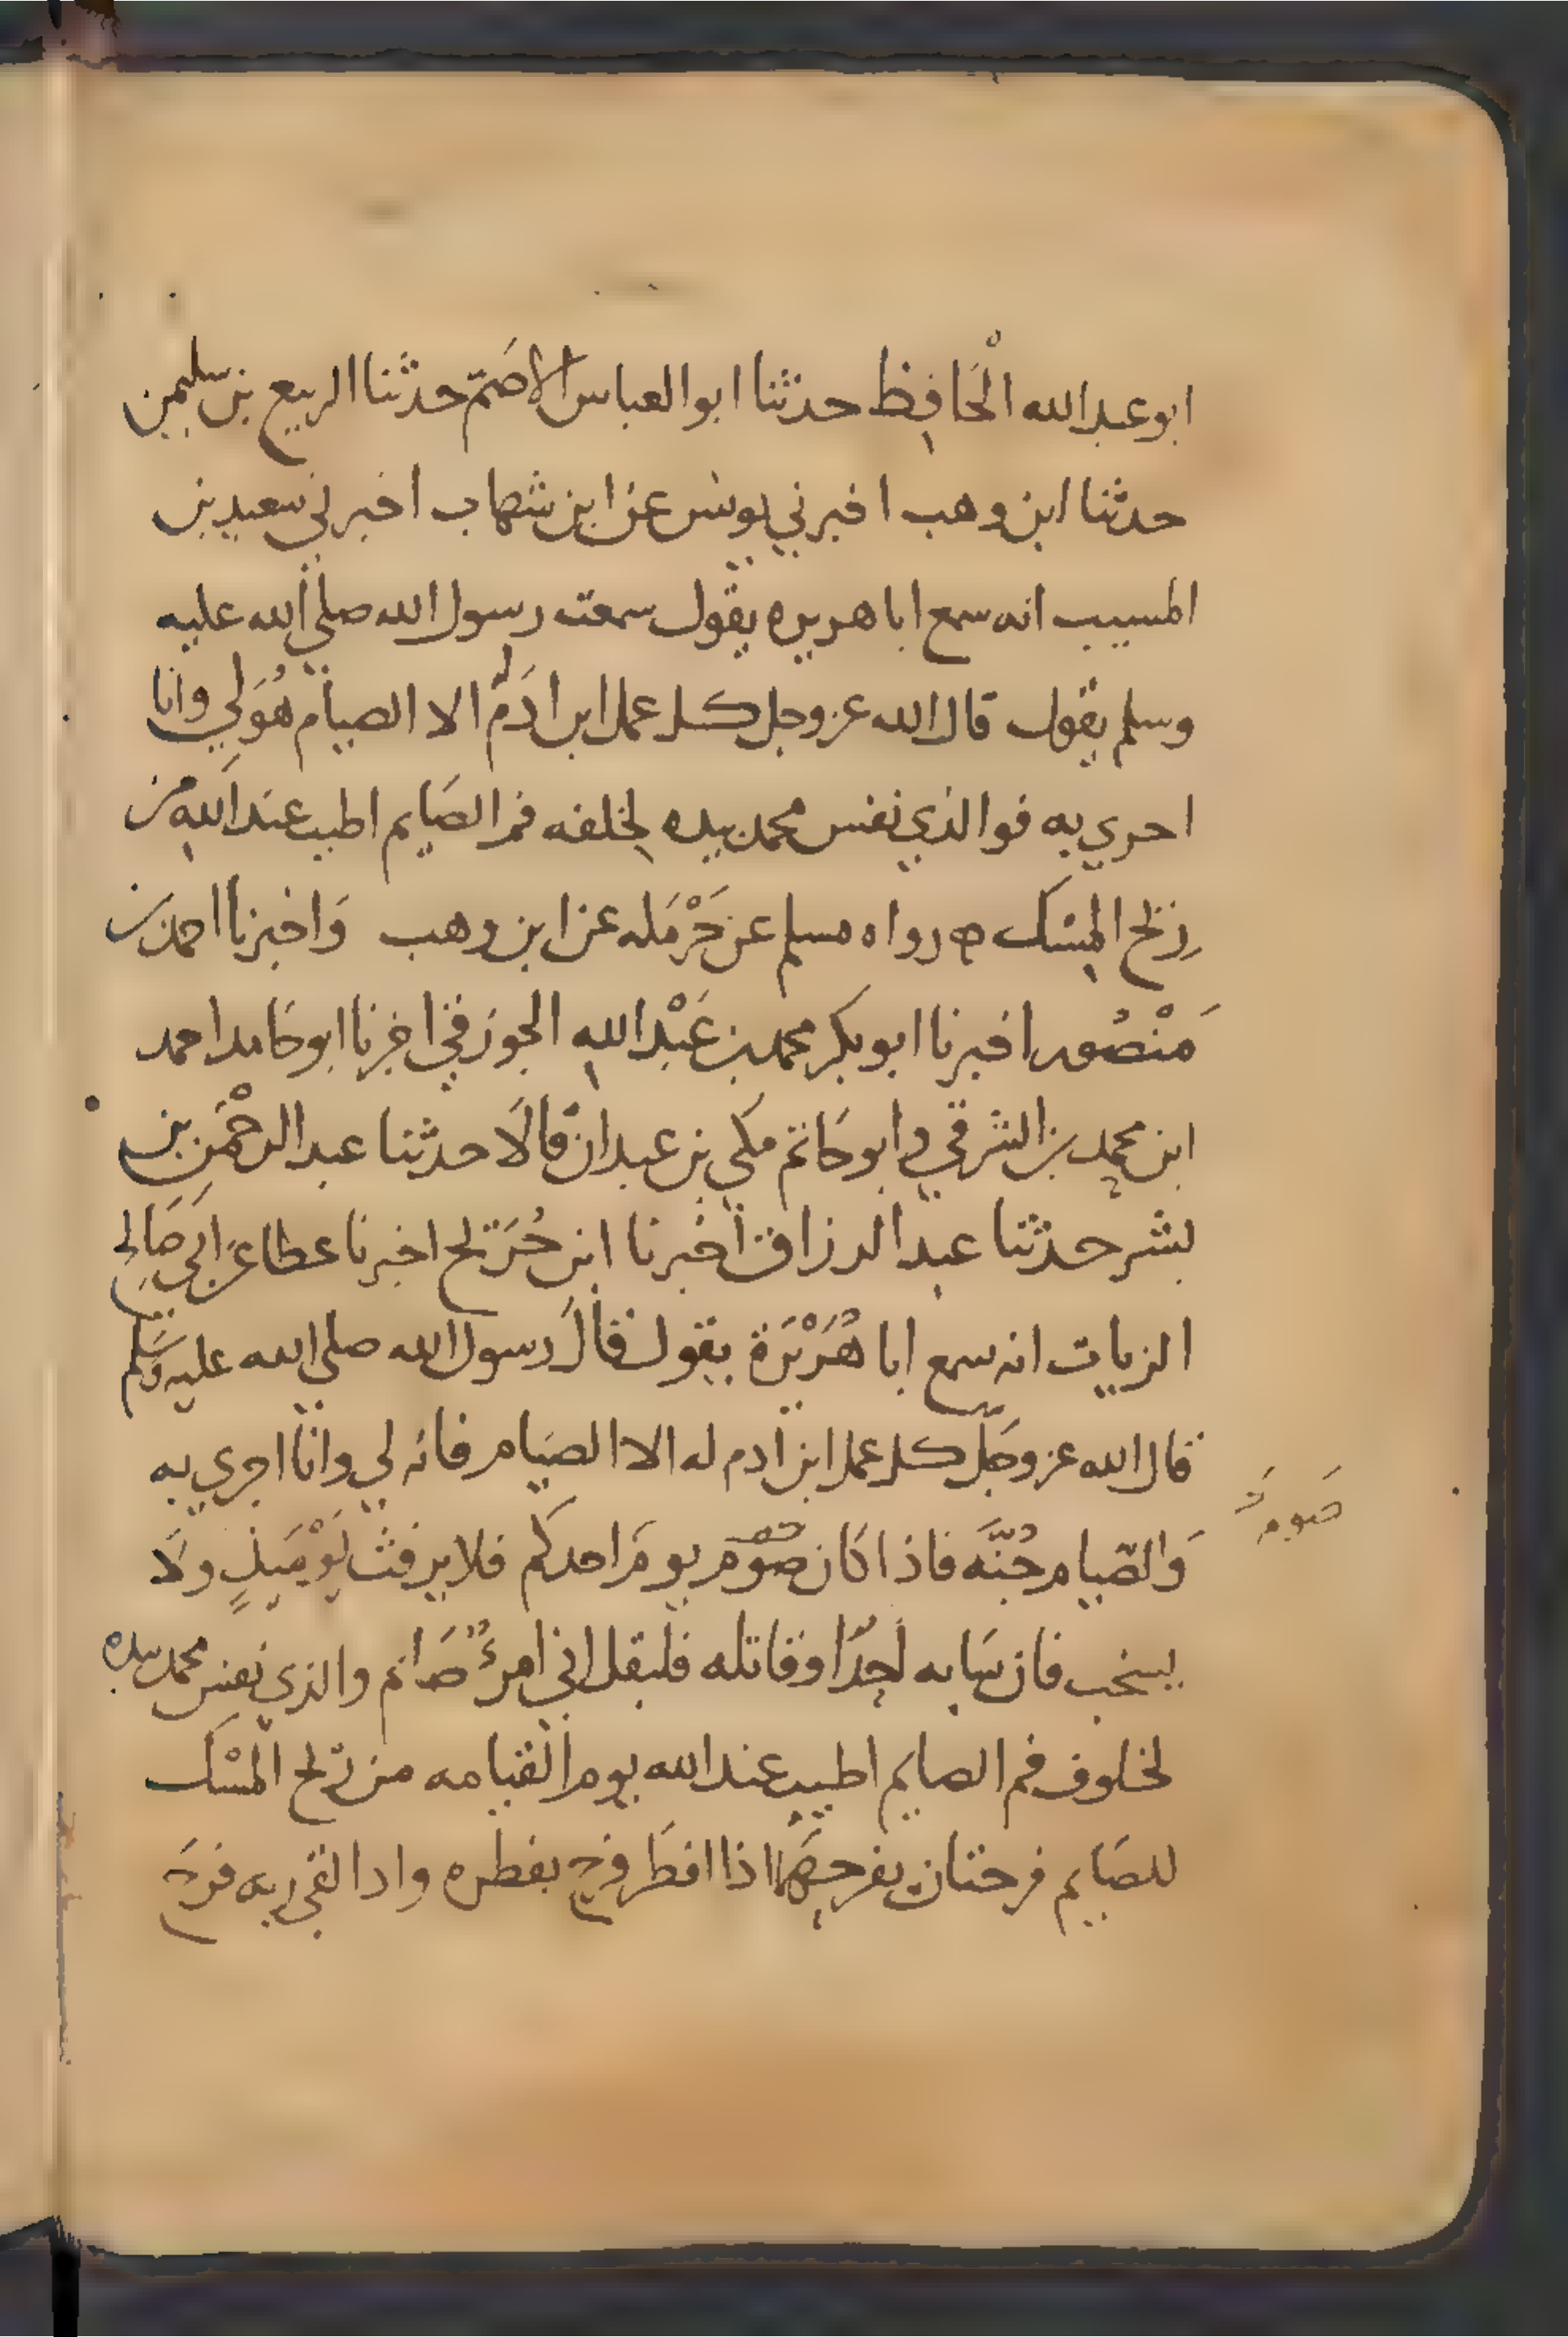 ابو عبد الله الْحَافِظ حدثنا ابو العباس الاصَمّ حدثنا الربيع بن سليمن
حدثنا ابن وهب اخبرني يونس عن ابن شهاب اخبرني سعيد بن
المسيب انه سمع ابا هريره يقول سمعت رسول الله صلي الله عليه
وسلم يقول قال الله عز وجل كل عمل ابن ادَمَ الا الصيام هُوَ لي وانا
اجري به فوالذي نفس محمد بيده لخلفه فم الصَايم اطيب عند اللهِ من
رِيْح المِسْك ه رواه مسلم عن حَرْمَله عن ابن وهب وَاخبرنا احمد بن
مَنْصُور اخبرنا ابو بكر محمد بن عَبْد اللهِ الجوزقي اخبرنا ابو حَامد احمد
ابن محمد بن الشرقي وابو حَاتم مكي بن عبدان قالَا حدثنا عبد الرحْمَن بن
بشر حدثنا عبد الرزاق اخبرنا ابن جُرَيْح اخبرنا عطا عن ابي صَالِح
الزيات انه سمع ابا هُرَيْرَة يقول قالَ رسول الله صلي الله عليه وسَلم
قال الله عز وجَلّ كل عمل ابن ادم له الا الصيَام فانه لي وانا اجري به
وَالصّيام جُنَّه فاذا كان صَوْم يومَ احدكم فلا يرفث يَوْمَيِذٍ ولَا
يسخب فان سَابه احِدٌ او قاتله فليقل اني امرءٌ صَائم والذي نفس محمد بيده
لخلوف فم الصايم اطيب عند الله يوم القيامه من رِيْح المسْك
للصَايم فرحتان يفرحهَما اذا افطَر فرح بفطره واذا لقي ربه فرحَ
صَومَ